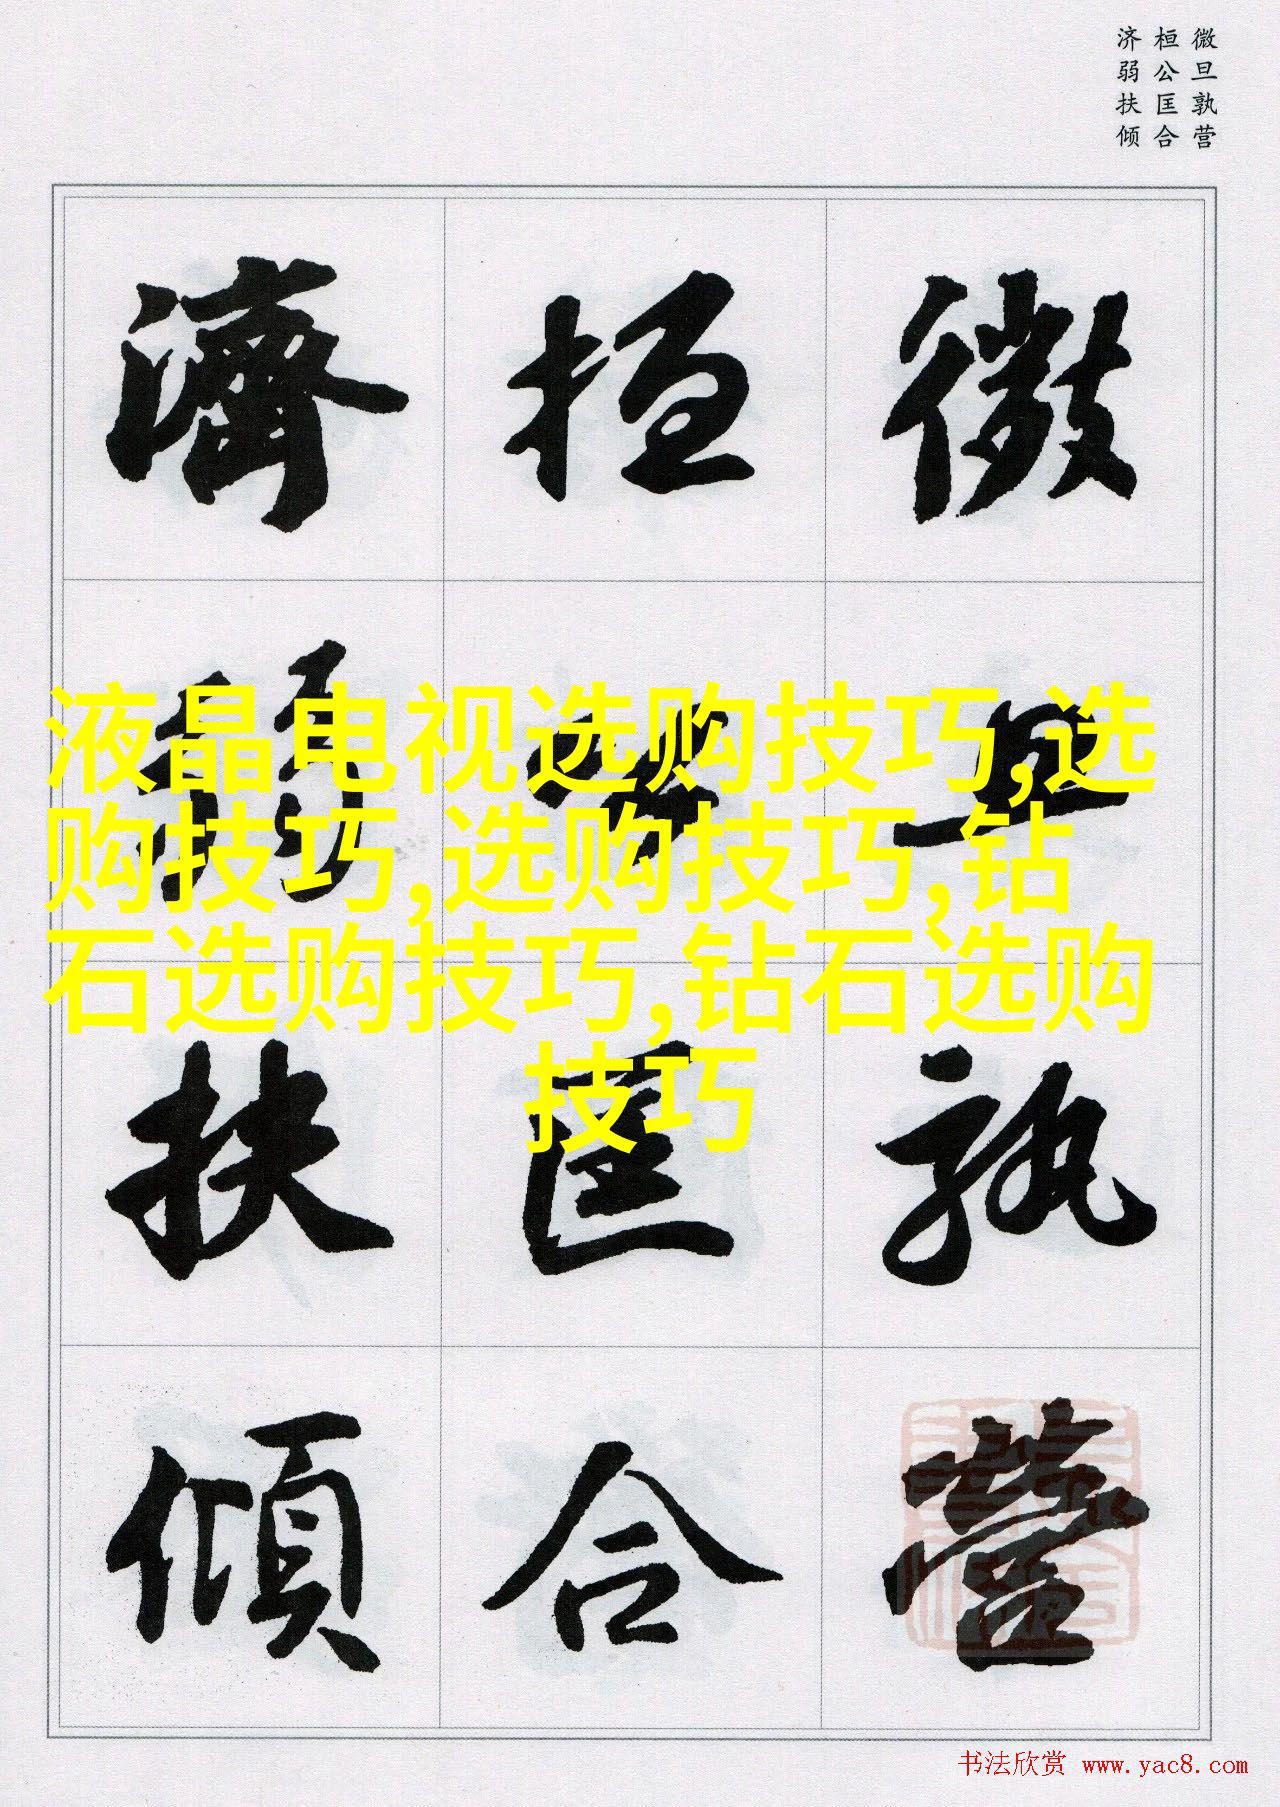 微旦孰营
桓公匡合
济弱扶倾
微旦孰營
桓公匡合
濟弱扶傾
液晶电视选购技巧,选
购技巧,选购技巧,钻
石选购技巧,钻石选购
技巧
书法欣赏 www.yac8.com